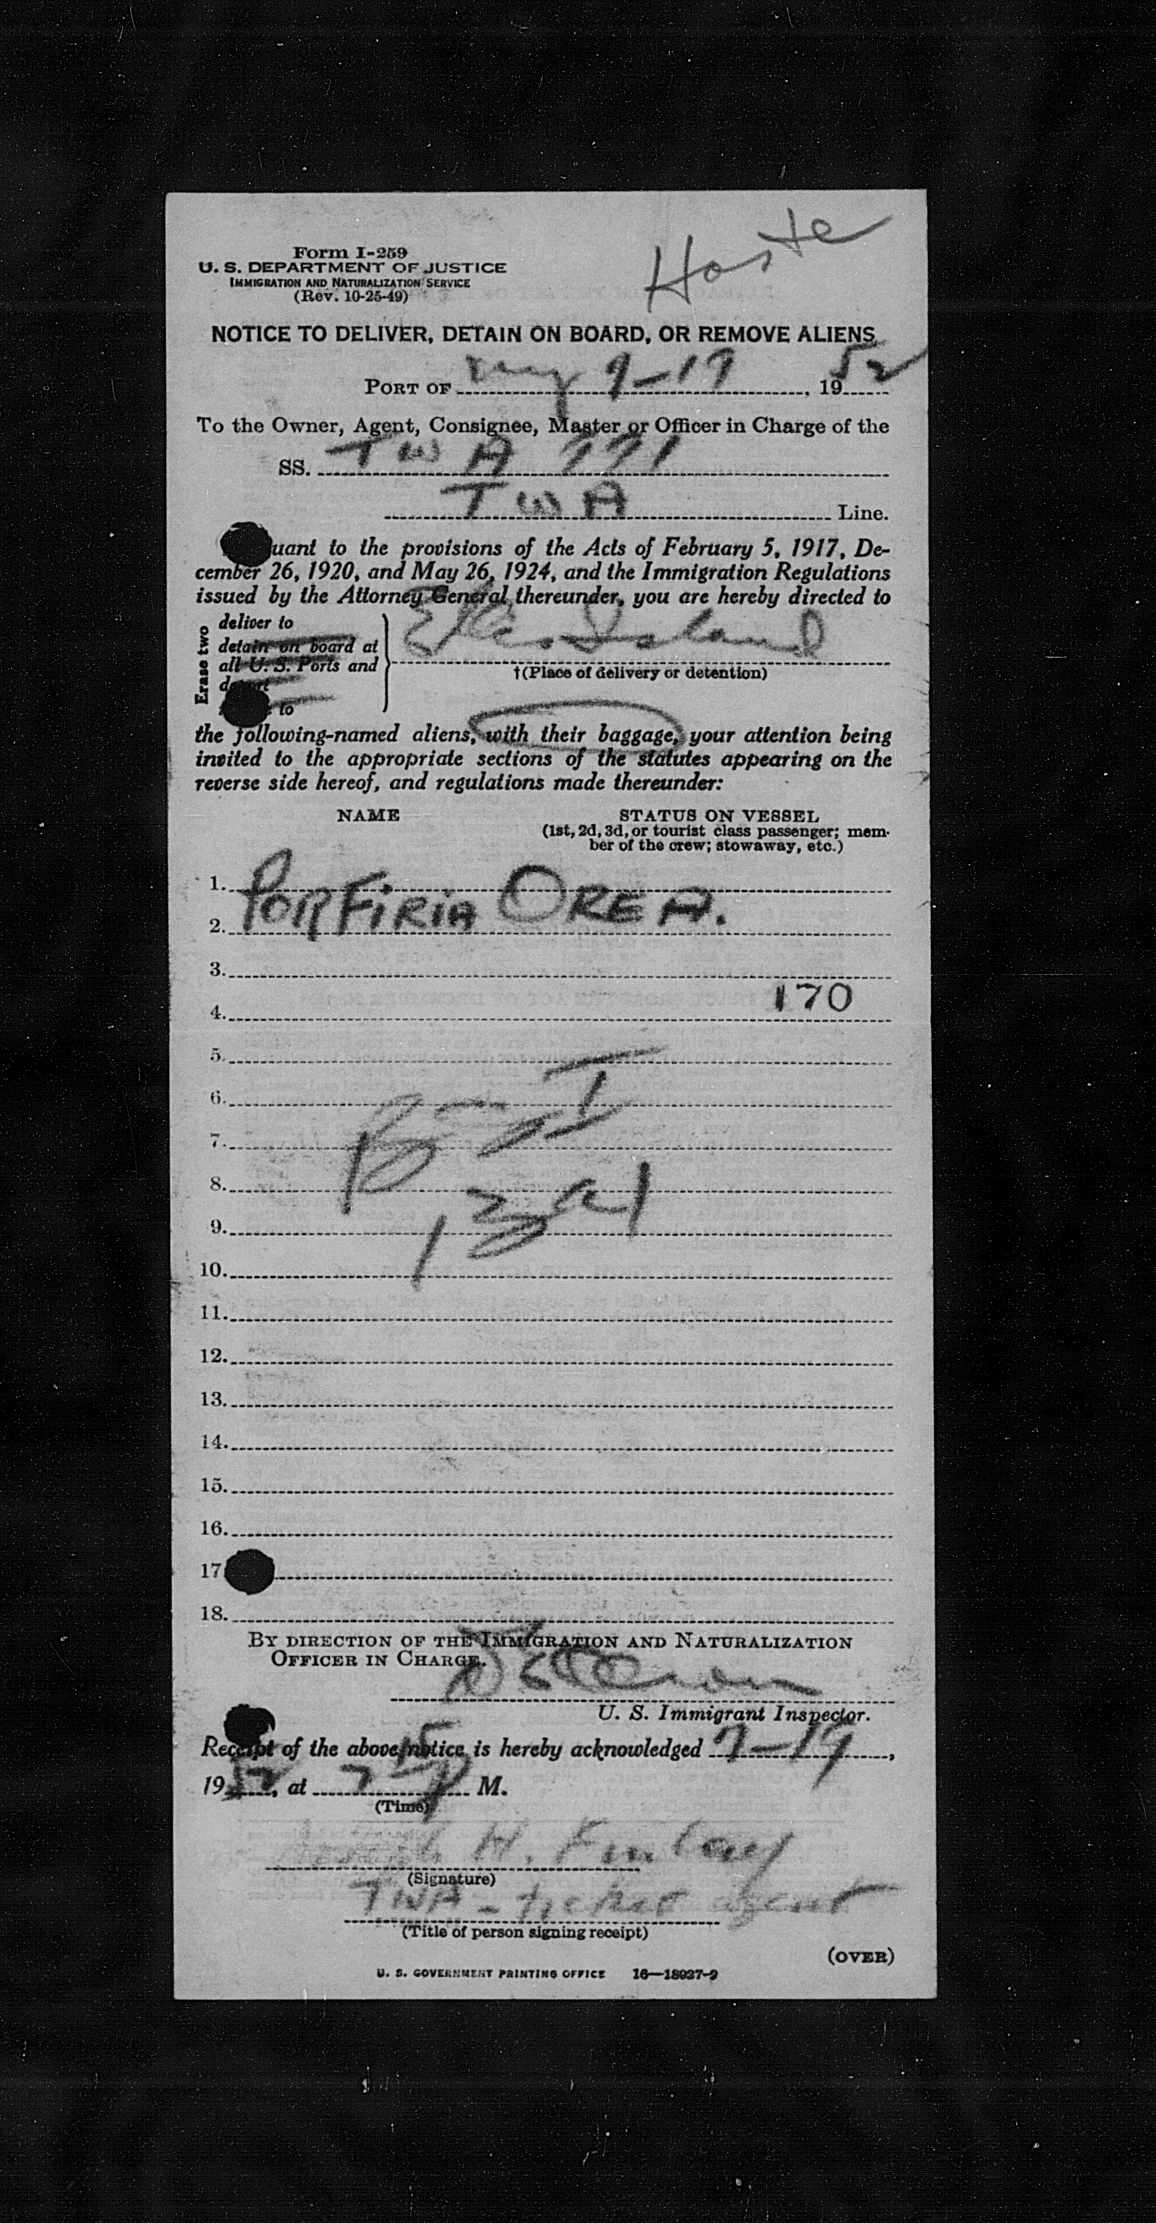 Form I-259
U. S. DEPARTMENT OF JUSTICE
IMMIGRATION AND NATURALIZATION SERVICE
(Rev. 10-25-49)
NOTICE TO DELIVER, DETAIN ON BOARD, OR REMOVE ALIENS
PORT OF 19 52
To the Owner, Agent, Consignee, Master or Officer in Charge of the
SS. TWA
TWA Line.
uant to the provisions of the Acts of February 5, 1917, De-
cember 26, 1920, and May 26, 1924, and the Immigration Regulations
issued by the Attorney General thereunder, you are hereby directed to
Erase two
deliver to
detain on board at
all U. S. Ports and
to
Ellis Island
†(Place of delivery or detention)
the following-named aliens, with their baggage, your attention being
invited to the appropriate sections of the statutes appearing on the
reverse side hereof, and regulations made thereunder:
NAME STATUS ON VESSEL
(1st, 2d, 3d, or tourist class passenger; mem-
ber of the crew; stowaway, etc.)
1.
2. PORFIRIA OREA.
3.
4. 170
5.
6.
7.
8.
9.
10.
11.
12.
13.
14.
15.
16.
17
18.
BY DIRECTION OF THE IMMIGRATION AND NATURALIZATION
OFFICER IN CHARGE.
U. S. Immigrant Inspector.
Receipt of the above notice is hereby acknowledged 7-19,
1952, at M.
(Time)
H. Finlay
(Signature)
TWA - ticket agent
(Title of person signing receipt)
(OVER)
U. S. GOVERNMENT PRINTING OFFICE 16—18027-2